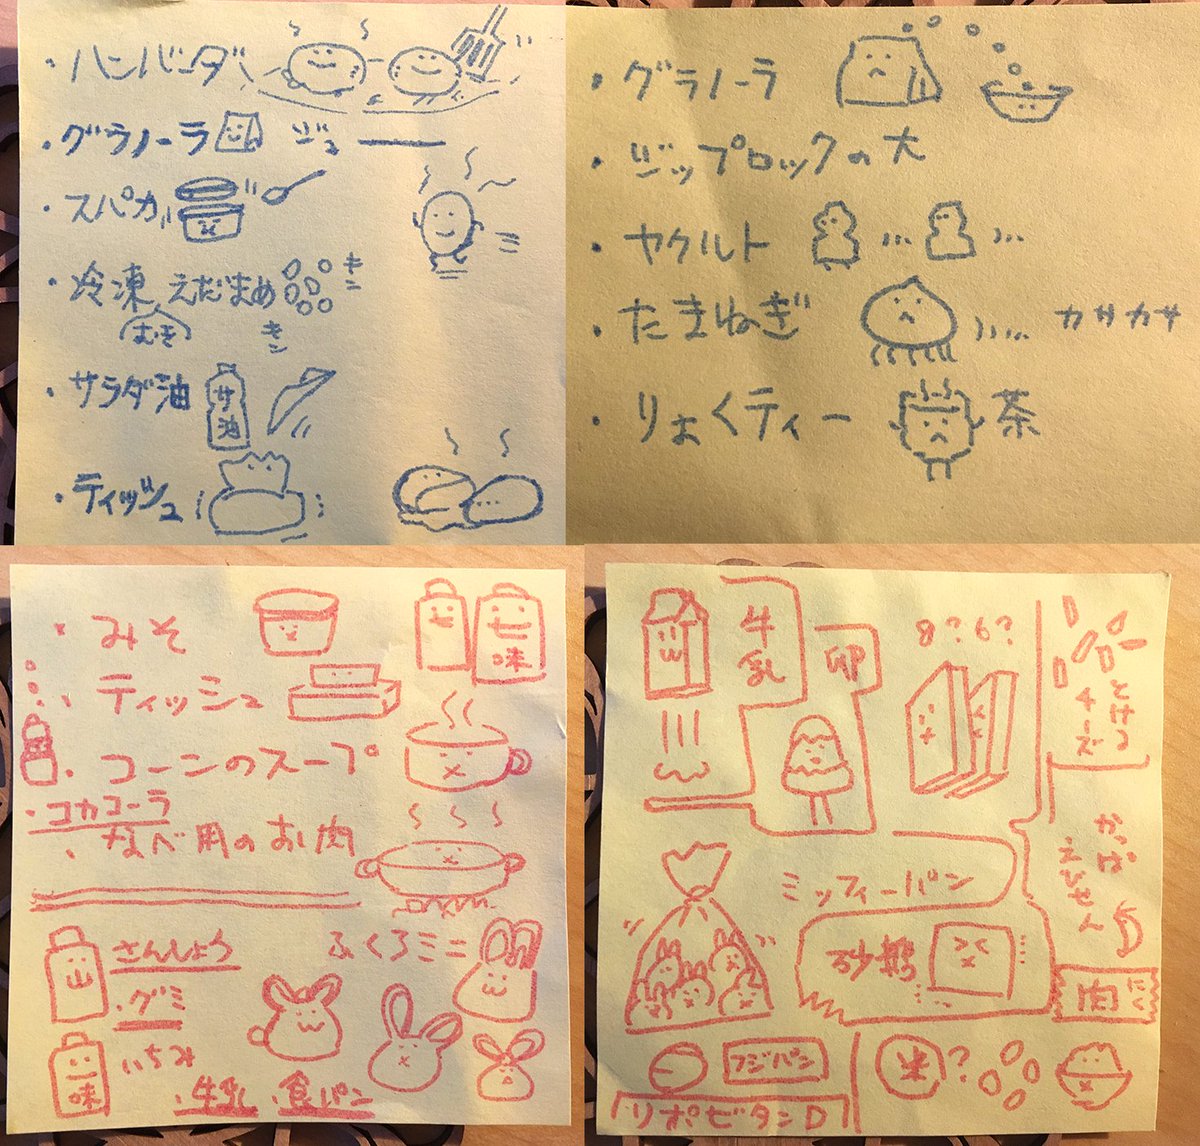 ・ハンバーグ
・グラノーラ ジュー
・スパカツ
・冷凍えだまめ キン
むき キン
・サラダ油 サ油
・ティッシュ
・グラノーラ
・ジップロックの大
・ヤクルト
・たまねぎ カサカサ
・りょくティー 茶
・みそ 七 七味
・ティッシュ
・コーンのスープ
・コカコーラ
・なべ用のお肉
さんしょう ふくろミニ
・グミ
味 いちみ
・牛乳 ・食パン
牛乳 卵 8?6? とけるチーズ
ミッフィーパン かっぱえびせん
砂糖 肉 にく
フジパン 米?
リポビタンD